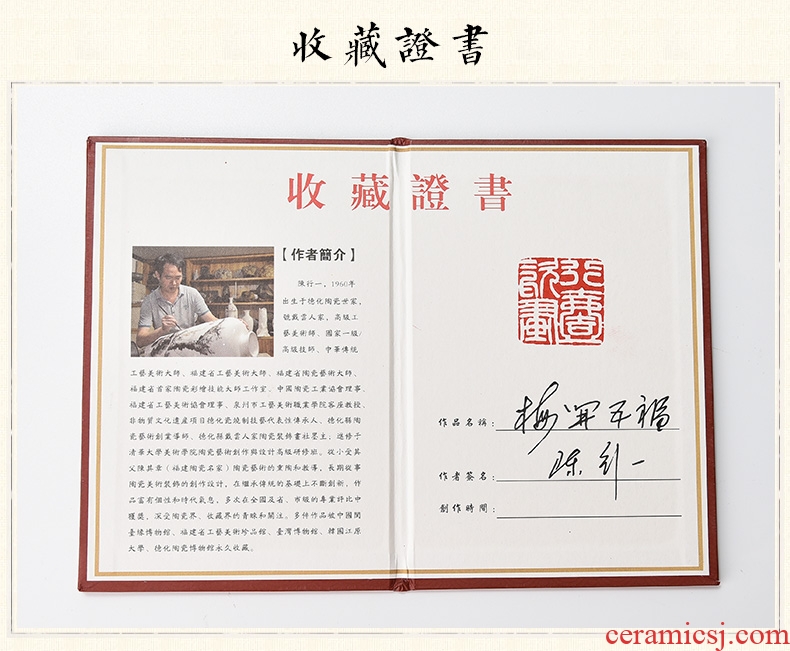 收藏證書
收藏證書
【作者簡介】
陳行一，1960年
出生于德化陶瓷世家，
號戴雲人家，高級工
藝美術師、國家一級/
高級技師、中華傳統
工藝美術大師、福建省工藝美術大師、福建省陶瓷藝術大師、
福建省首家陶瓷彩繪技能大師工作室、中國陶瓷工業協會理事、
福建省工藝美術協會理事、泉州市工藝美術職業學院客座教授、
非物質文化遺產項目德化瓷燒制技藝代表性傳承人、德化縣陶
瓷藝術創業導師、德化縣戴雲人家陶瓷裝飾畫社墨主；進修于
清華大學美術學院陶瓷藝術創作與設計高級研修班。從小受其
父陳其章（福建陶瓷名家）陶瓷藝術的熏陶和教導，長期從事
陶瓷美術裝飾的創作設計，在繼承傳統的基礎上不斷創新，作
品富有個性和時代氣息，多次在全國及省、市級的專業評比中
獲獎，深受陶瓷界、收藏界的青睞和關注。多件作品被中國閩
臺緣博物館、福建省工藝美術珍品館、臺灣博物館、韓國江原
大學、德化陶瓷博物館永久收藏。
作品名稱：梅開五福
作者簽名：陳行一
創作時間：
ceramicsj.com